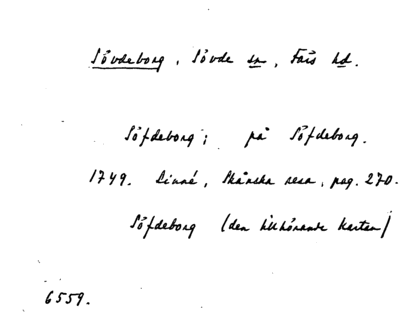 Sövdeborg, Sövde sn, Färs hd.
Söfdeborg; på Söfdeborg.
1749. Linné, Skånska resa, pag. 270.
Söfdeborg (den tillhörande kartan)
6559.